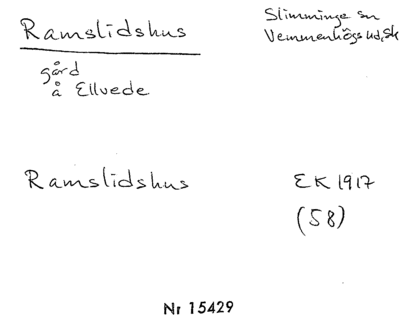 Ramslidshus
Slimminge sn
Vemmenhögs hd, Sk
gård
å Ellvede
Ramslidshus
EK 1917
(58)
Nr 15429